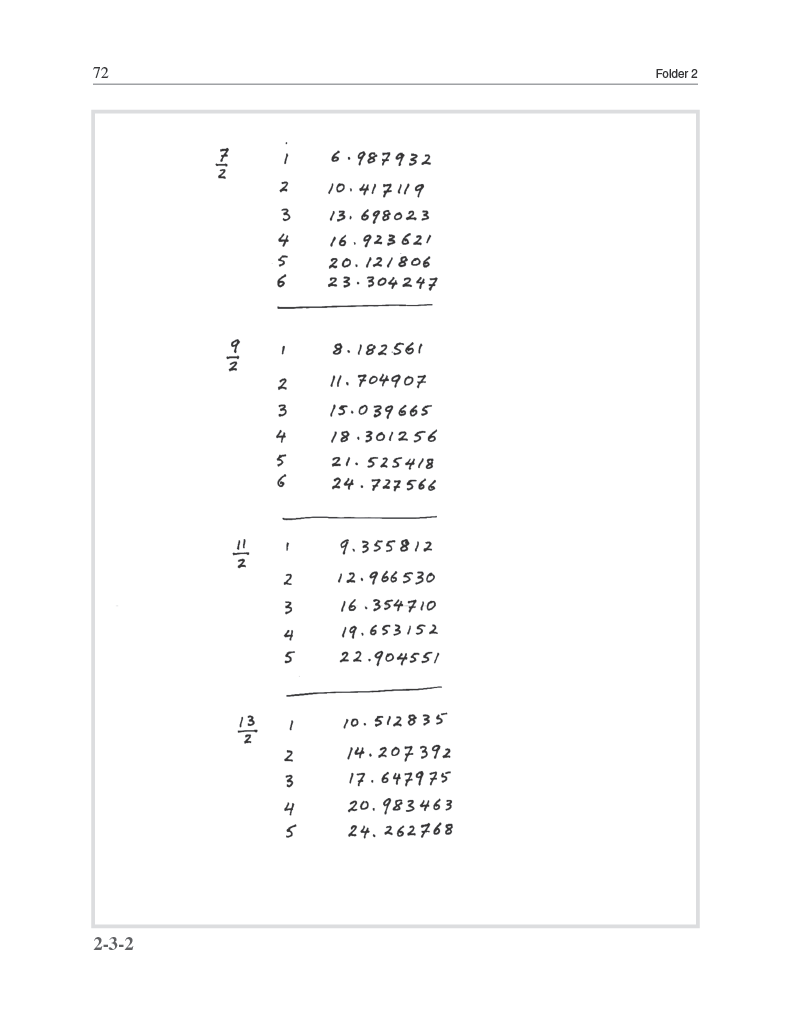 72 Folder 2
7/2 1 6.987932
2 10.417119
3 13.698023
4 16.923621
5 20.121806
6 23.304247
9/2 1 8.182561
2 11.704907
3 15.039665
4 18.301256
5 21.525418
6 24.727566
11/2 1 9.355812
2 12.966530
3 16.354710
4 19.653152
5 22.904551
13/2 1 10.512835
2 14.207392
3 17.647975
4 20.983463
5 24.262768
2-3-2